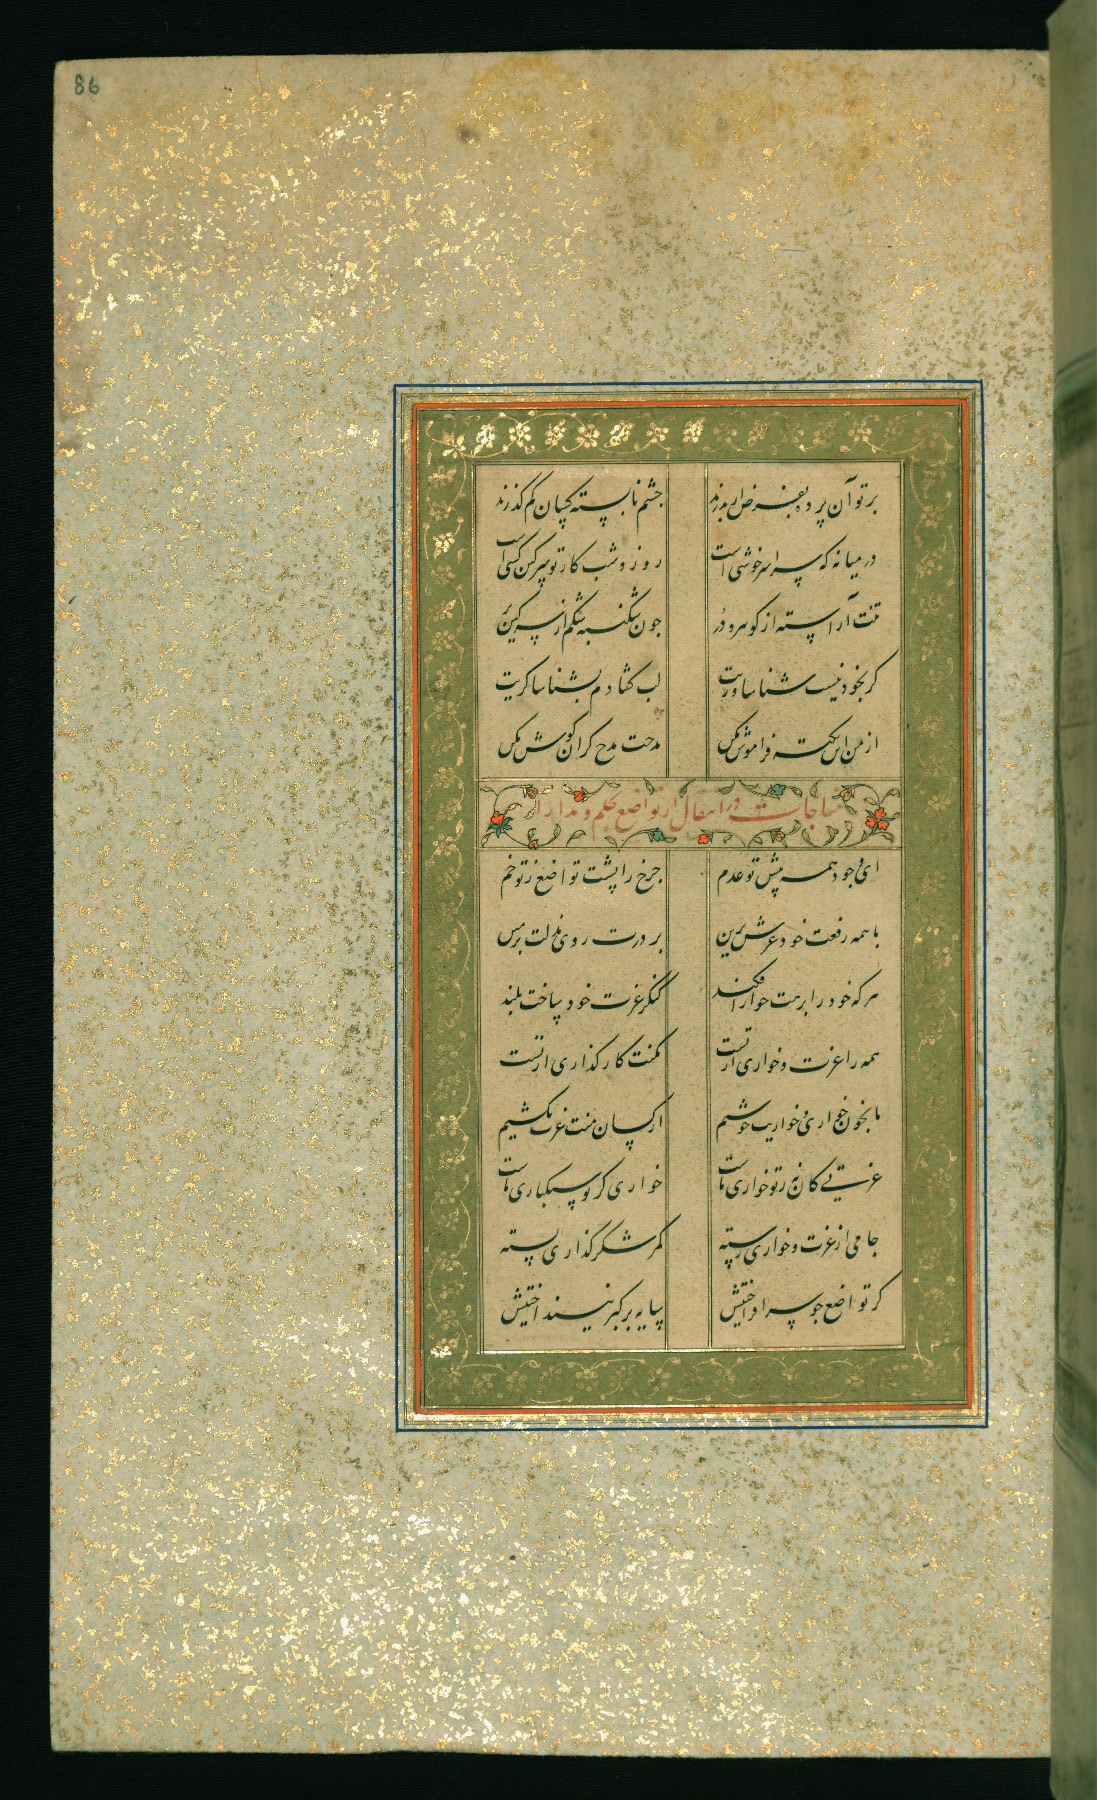 86
بر تو آن پرده بفرض ار بدرند جشم نابسته کسان کم کذرند
در میانه که سراسر خوشی است روز و شب کار تو سرکین کشی است
تنت آراسته از کوهر و در جون شکنبه شکم از سرکین پر
کر بخود نیست شناساوریت لب کشادم بشناساکریت
از من این نکته فراموش مکن مدحت مدح کران کوش مکن
مناجات در انتقال از تواضع بحلم و مدارا
ای وجود همه پیش تو عدم جرخ را پشت تواضع ز تو خم
با همه رفعت خود عرش برین بر درت روی مذلت بزمین
هر که خود را برهت خوار افکند کنکر عزت خود ساخت بلند
همه را عزت و خواری از تست مکنت کارکذاری از تست
ما بخون خواری و خواریت خوشیم از کسان منت عزت نکشیم
عزتی کان نه ز تو خواری ماست خواری کز تو سبکباری ماست
جامی از عزت و خواری رسته کمر شکرکذاری بسته
کر تواضع جو سر افراختیش سایه بر کبر نینداختیش